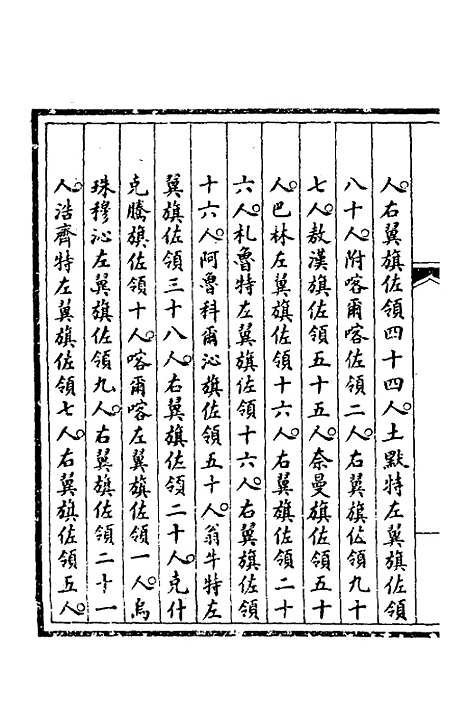 人右翼旗佐領四十四人土默特左翼旗佐領
八十人附喀爾喀佐領二人右翼旗佐領九十
七人敖漢旗佐領五十五人奈曼旗佐領五十
人巴林左翼旗佐領十六人右翼旗佐領二十
六人札魯特左翼旗佐領十六人右翼旗佐領
十六人阿魯科爾沁旗佐領五十人翁牛特左
翼旗佐領三十八人右翼旗佐領二十人克什
克騰旗佐領十人喀爾喀左翼旗佐領一人烏
珠穆沁左翼旗佐領九人右翼旗佐領二十一
人浩齊特左翼旗佐領七人右翼旗佐領五人